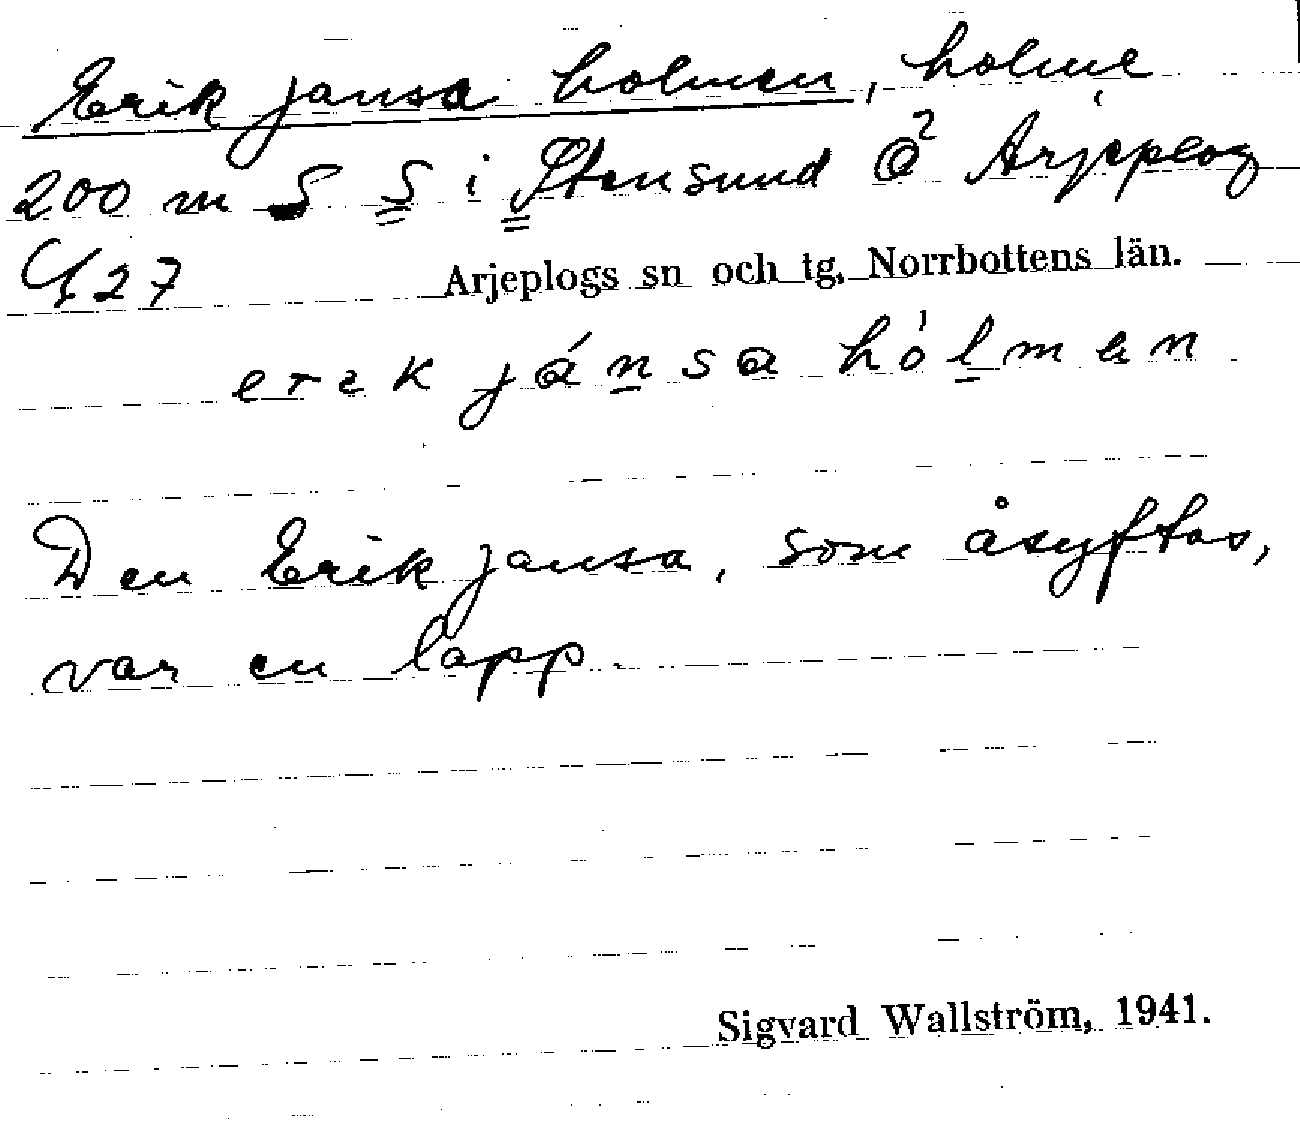 Erik jansa holmen, holme
200 m S S i Stensund Ö² Arjeplog
27
Arjeplogs sn och tg, Norrbottens län.
erɪk jánsa hólmen
Den Erik jansa, som åsyftas,
var en lapp.
Sigvard Wallström, 1941.